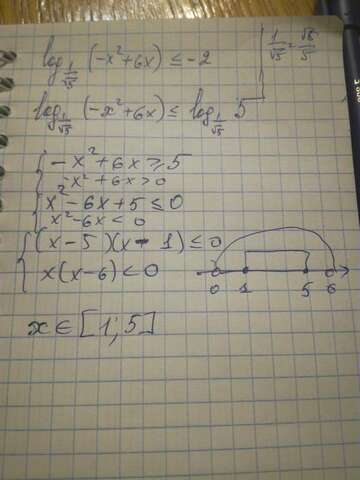 log_{1/√5} (-x²+6x) ≤ -2
1/√5 = √5/5
log_{1/√5} (-x²+6x) ≤ log_{1/√5} 5
{ -x²+6x ≥ 5
-x²+6x > 0
{ x²-6x+5 ≤ 0
x²-6x < 0
{ (x-5)(x-1) ≤ 0
x(x-6) < 0
0 1 5 6
x ∈ [1; 5]